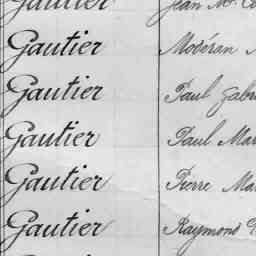 Gautier Jean M.
Gautier Modéran
Gautier Paul Gabri
Gautier Paul Mar
Gautier Pierre Ma
Gautier Raymond